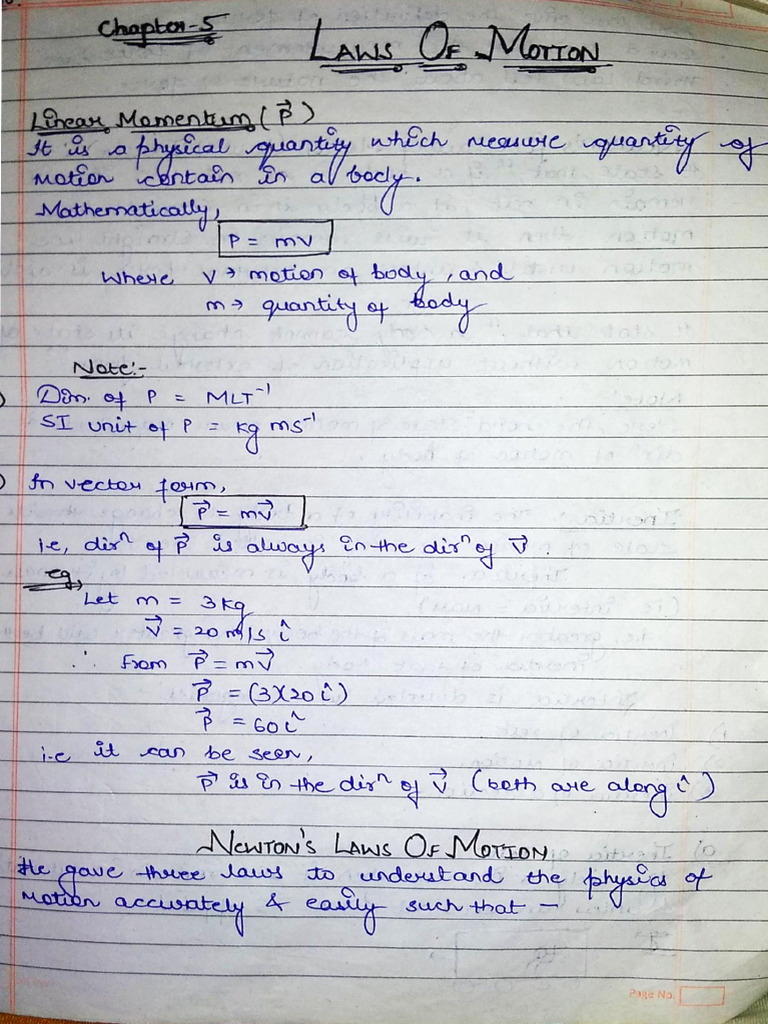 Chapter-5
LAWS OF MOTION
Linear Momentum (P⃗)
It is a physical quantity which measure quantity of
motion contain in a body.
Mathematically,
P = mv
where v → motion of body, and
m → quantity of body
Note:-
) Dim. of P = MLT⁻¹
SI unit of P = kg ms⁻¹
) In vector form,
P⃗ = mv⃗
i.e, dirⁿ of P⃗ is always in the dirⁿ of v⃗.
eg
Let m = 3kg
v⃗ = 20 m/s î
∴ from P⃗ = mv⃗
P⃗ = (3)(20 î)
P⃗ = 60 î
i.e it can be seen,
P⃗ is in the dirⁿ of v⃗ (both are along î)
NEWTON'S LAWS OF MOTION
He gave three laws to understand the physics of
motion accurately & easily such that –
Page No.